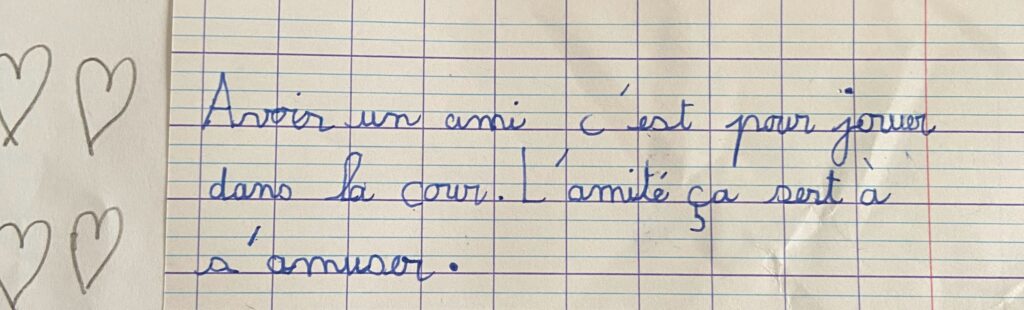 Avoir un ami c'est pour jouer
dans la cour. L'amité ça sert à
s'amuser.